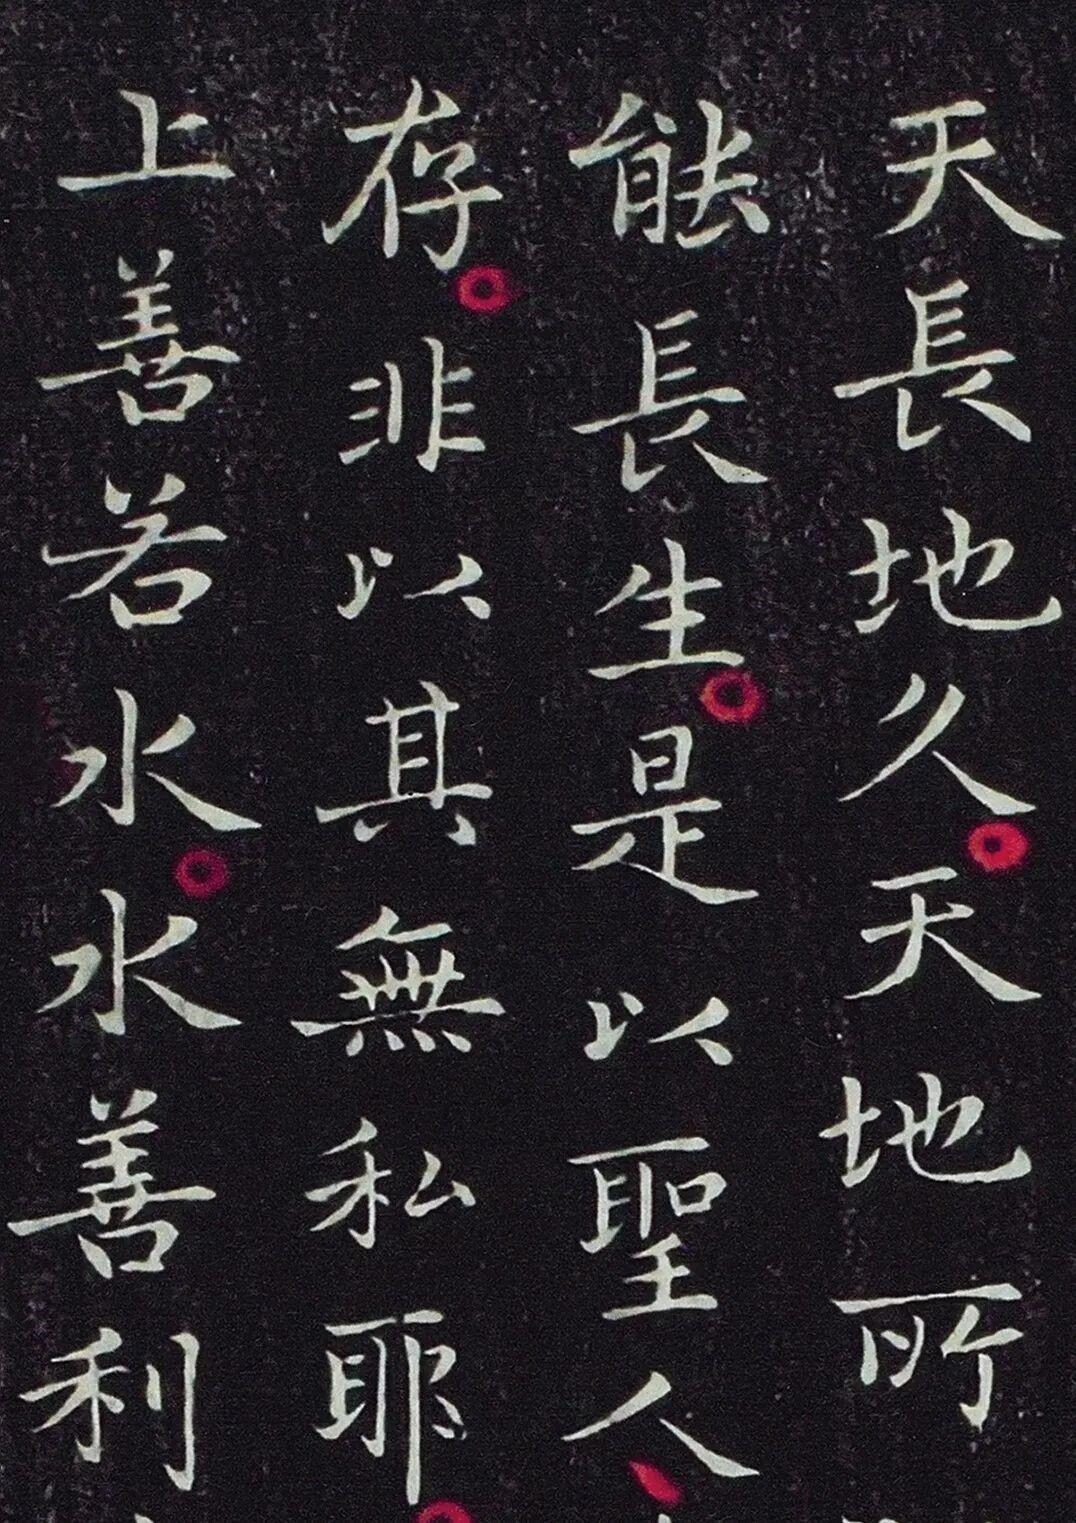 天長地久天地所
能長生是以聖人
存非以其無私耶
上善若水水善利